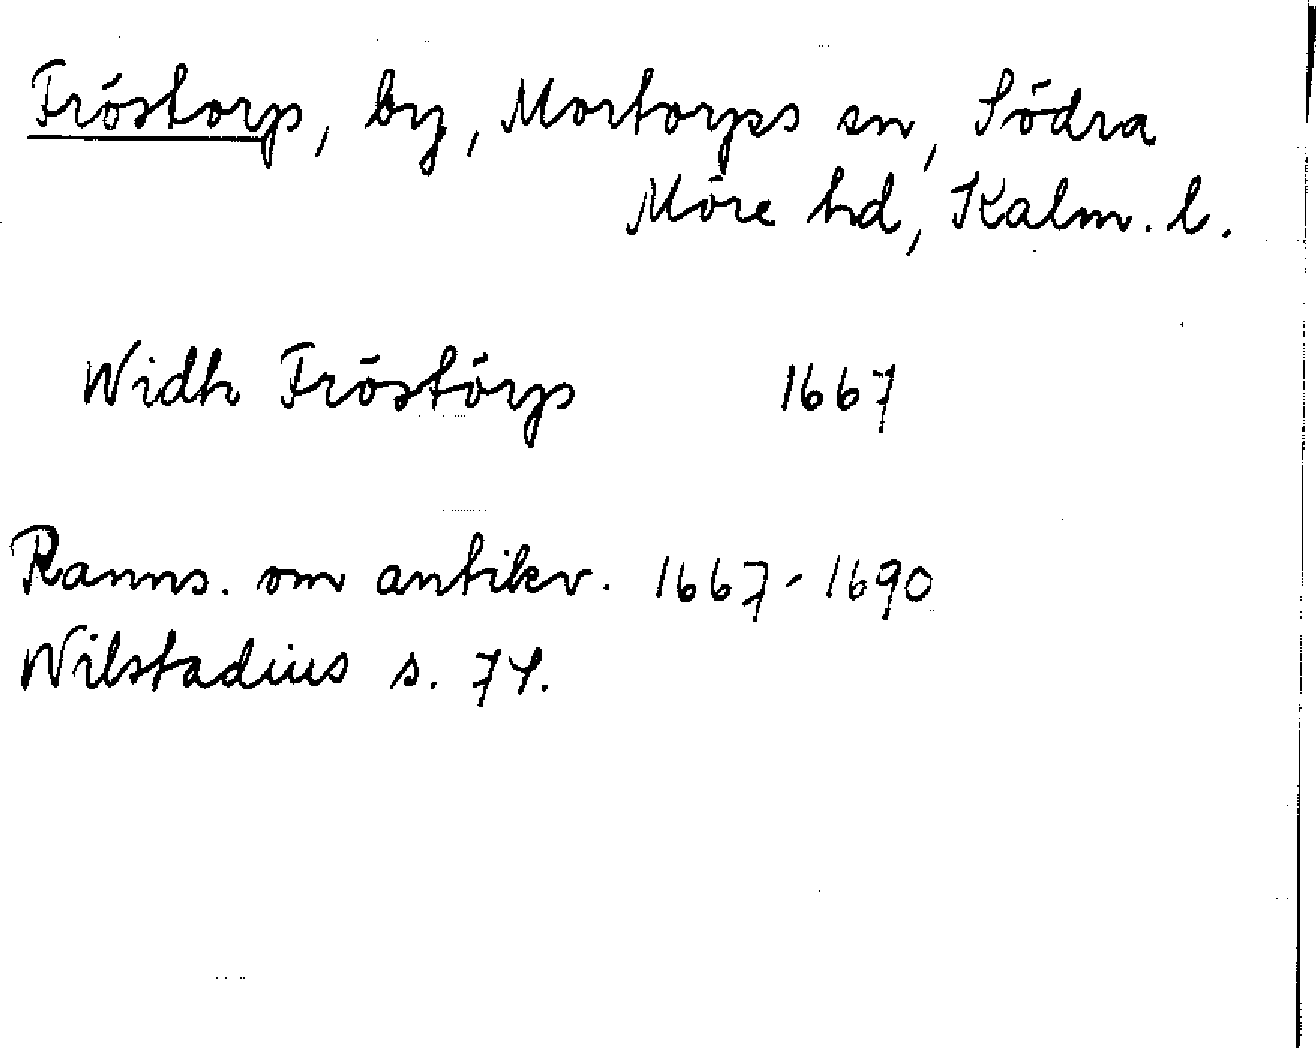 Fröstorp, by, Mortorps sn, Södra
Möre hd, Kalm. l.
Widh Fröstörp 1667
Ranns. om antikv. 1667-1690
Wilstadius s. 74.